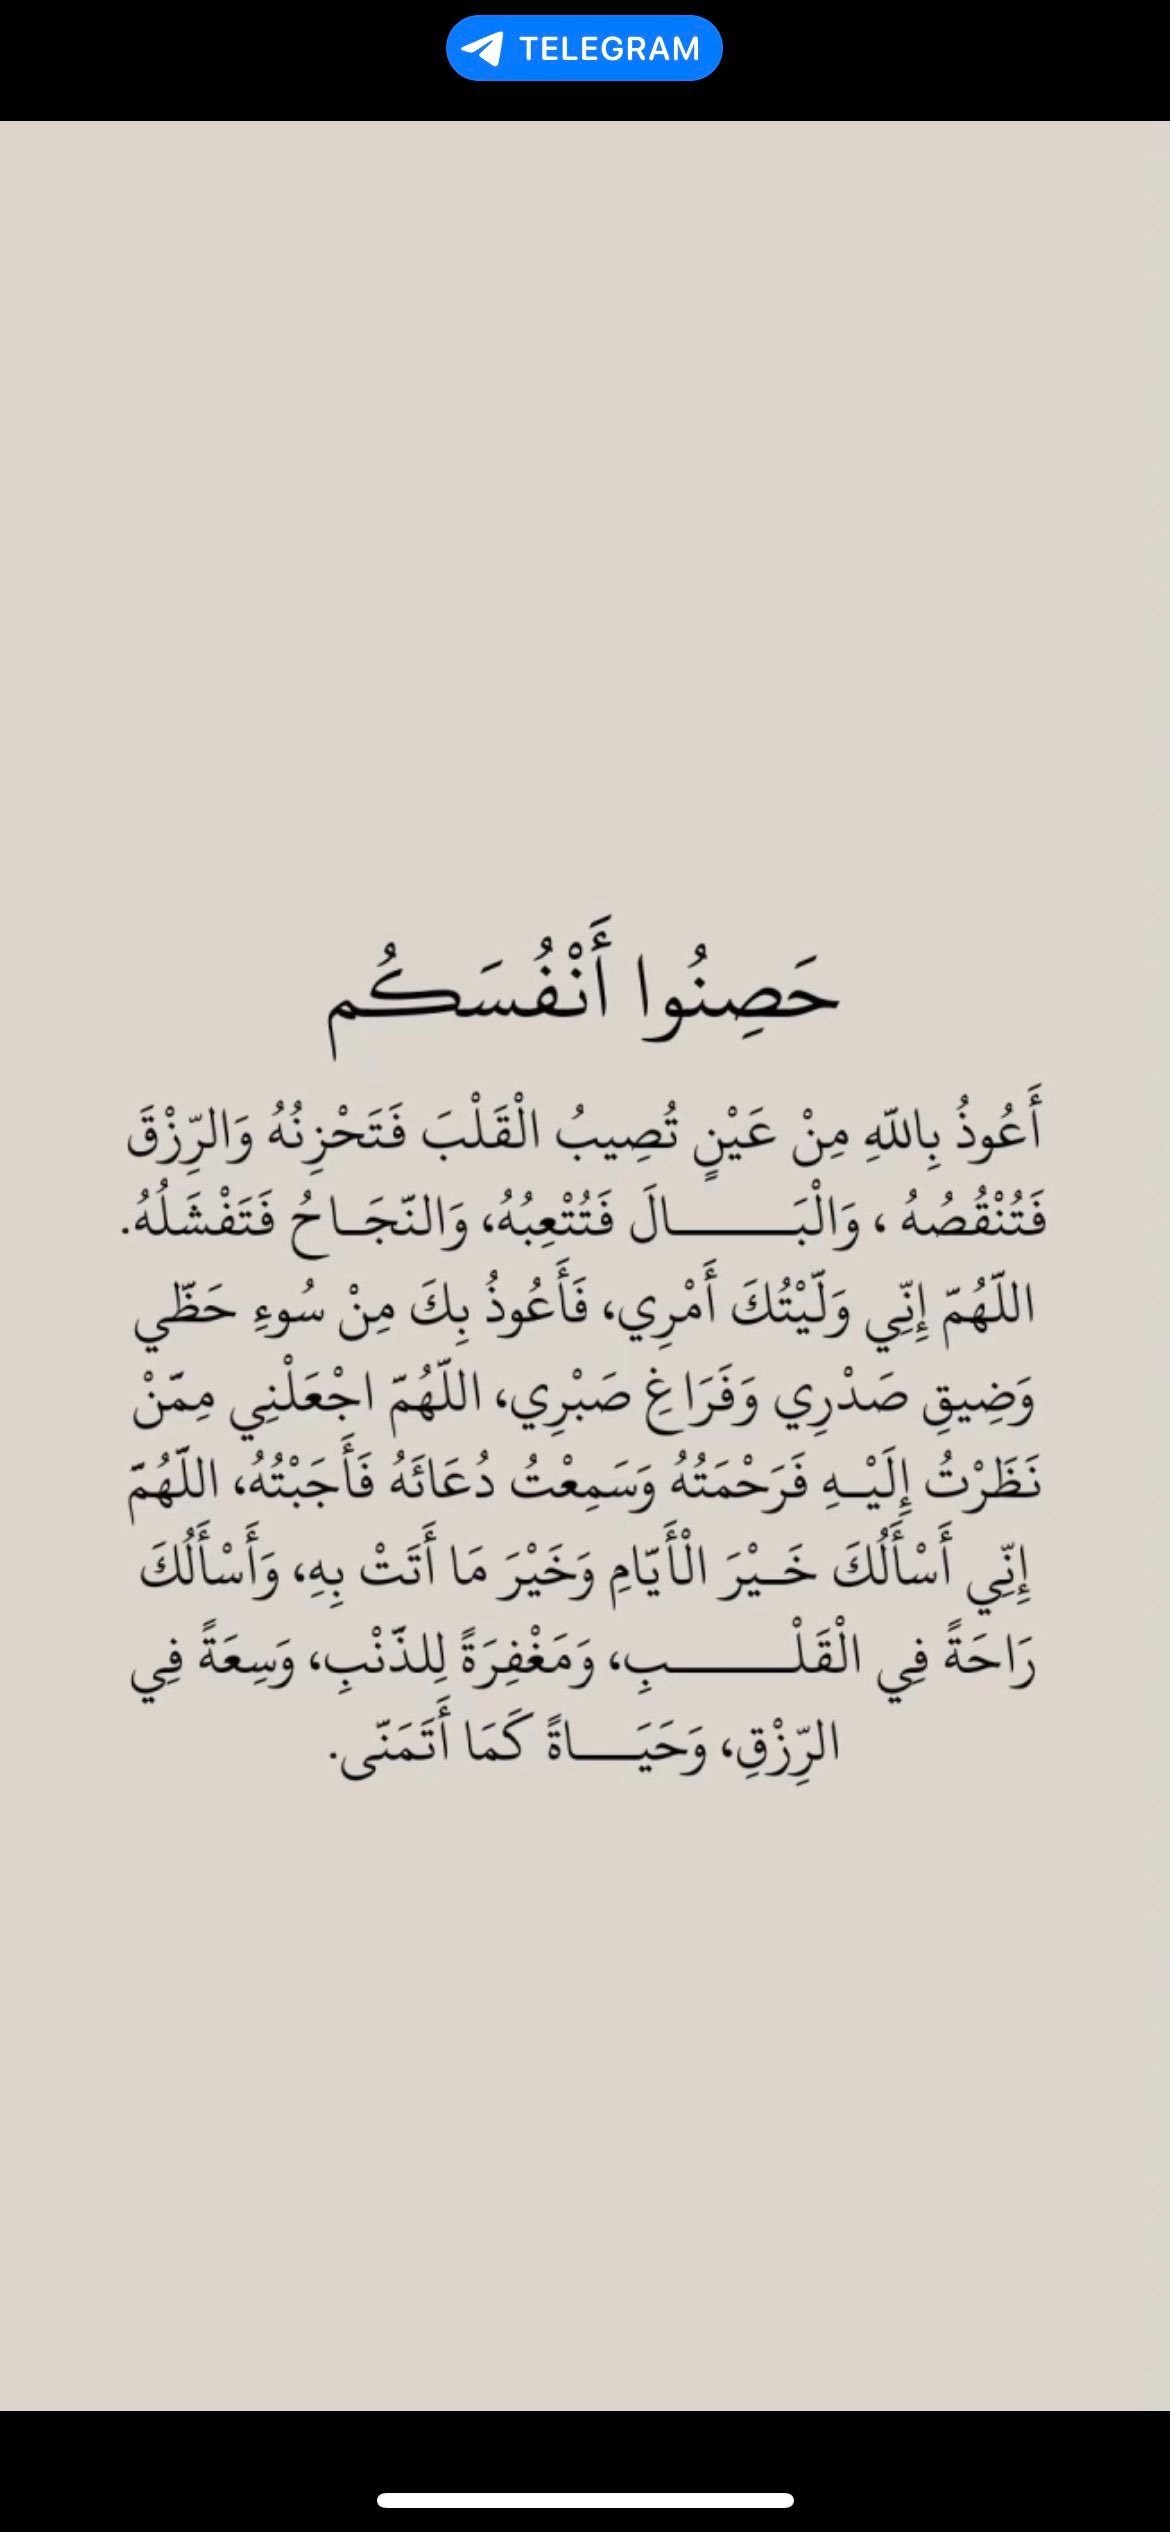 TELEGRAM
حَصِنُوا أَنْفُسَكُم
أَعُوذُ بِاللّهِ مِنْ عَيْنٍ تُصِيبُ الْقَلْبَ فَتَحْزِنُهُ وَالرِّزْقَ
فَتُنْقُصُهُ ، وَالْبَـــــــالَ فَتُتْعِبُهُ، وَالنَّجَـاحُ فَتَفْشَلُهُ.
اللَّهُمّ إِنِّي وَلَّيْتُكَ أَمْرِي، فَأَعُوذُ بِكَ مِنْ سُوءِ حَظّي
وَضِيقِ صَدْرِي وَفَرَاغِ صَبْرِي، اللَّهُمّ اجْعَلْنِي مِمّنْ
نَظَرْتُ إِلَيْـهِ فَرَحْمَتُهُ وَسَمِعْتُ دُعَائَهُ فَأَجَبْتُهُ، اللَّهُمّ
إِنِّي أَسْأَلُكَ خَـيْرَ الْأَيّامِ وَخَيْرَ مَا أَتَتْ بِهِ، وَأَسْأَلُكَ
رَاحَةً فِي الْقَلْـــــــبِ، وَمَغْفِرَةً لِلذّنْبِ، وَسِعَةً فِي
الرِّزْقِ، وَحَيَــــاةً كَمَا أَتَمَنّى.